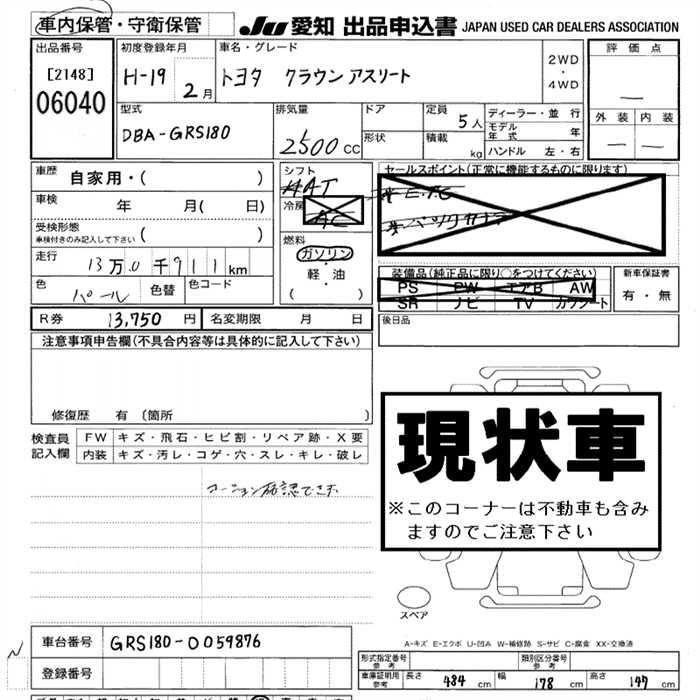 車内保管・守衛保管 JU 愛知 出品申込書 JAPAN USED CAR DEALERS ASSOCIATION
出品番号 初度登録年月 車名・グレード 評価点
[2148] H-19 2月 トヨタ クラウン アスリート 2WD・4WD
06040
外装 内装
型式 排気量 ドア 定員 ディーラー・並行
DBA-GRS180 2500 CC 5人 モデル年式 年
形状 積載 kg ハンドル 左・右
車歴 自家用・( ) シフト セールスポイント(正常に機能するものに限ります)
AT
車検 年 月( 日) 冷房 AC
受検形態
車検付きのみ記入して下さい ( ) 燃料
ガソリン
軽・油
( ・ )
走行 13万0千911km
装備品(純正品に限り○をつけてください) 新車保証書
色 パール 色替 色コード PS PW エアB AW 有・無
SR ナビ TV カワシート
R券 13,750円 名変期限 月 日 後日品
注意事項申告欄(不具合内容等は具体的に記入して下さい)
修復歴 有 (箇所 )
現状車
※このコーナーは不動車も含みますのでご注意下さい
検査員記入欄 FW キズ・飛石・ヒビ割・リペア跡・X要
内装 キズ・汚レ・コゲ・穴・スレ・キレ・破レ
コーション確認できず
スペア
A-キズ E-エクボ U-凹み W-補修跡 S-サビ C-腐食 XX-交換済
車台番号 GRS180-0059876
登録番号
形式指定番号 参考 類別区分番号 参考
車庫証明用 参考 長さ 484cm 幅 178cm 高さ 147cm